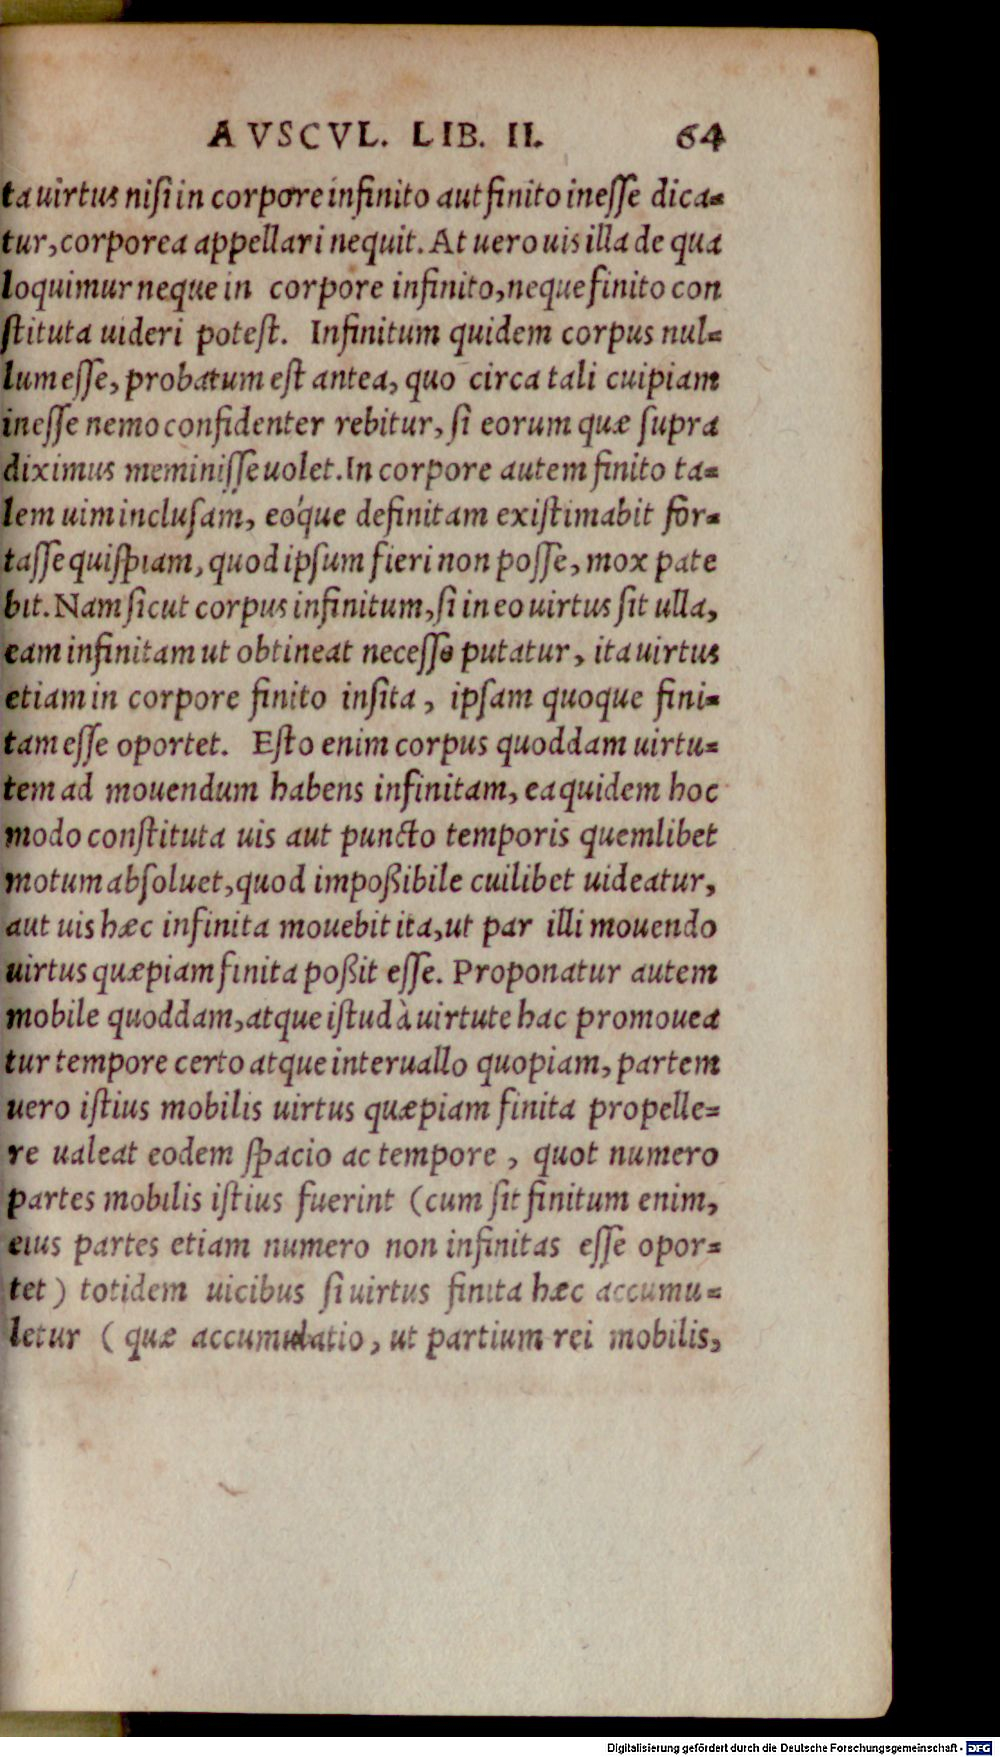 AVSCVL. LIB. II. 64
ta uirtus nisi in corpore infinito aut finito inesse dica-
tur, corporea appellari nequit. At uero uis illa de qua
loquimur neque in corpore infinito, neque finito con
stituta uideri potest. Infinitum quidem corpus nul-
lum esse, probatum est antea, quo circa tali cuipiam
inesse nemo confidenter rebitur, si eorum quæ supra
diximus meminisse uolet. In corpore autem finito ta-
lem uim inclusam, eóque definitam existimabit for-
tasse quispiam, quod ipsum fieri non posse, mox pate
bit. Nam sicut corpus infinitum, si in eo uirtus sit ulla,
eam infinitam ut obtineat necesse putatur, ita uirtus
etiam in corpore finito insita, ipsam quoque fini-
tam esse oportet. Esto enim corpus quoddam uirtu-
tem ad mouendum habens infinitam, ea quidem hoc
modo constituta uis aut puncto temporis quemlibet
motum absoluet, quod impoßibile cuilibet uideatur,
aut uis hæc infinita mouebit ita, ut par illi mouendo
uirtus quæpiam finita poßit esse. Proponatur autem
mobile quoddam, atque istud à uirtute hac promouea
tur tempore certo atque interuallo quopiam, partem
uero istius mobilis uirtus quæpiam finita propelle-
re ualeat eodem spacio ac tempore, quot numero
partes mobilis istius fuerint (cum sit finitum enim,
eius partes etiam numero non infinitas esse opor-
tet) totidem uicibus si uirtus finita hæc accumu-
letur (quæ accumulatio, ut partium rei mobilis,
Digitalisierung gefördert durch die Deutsche Forschungsgemeinschaft - DFG